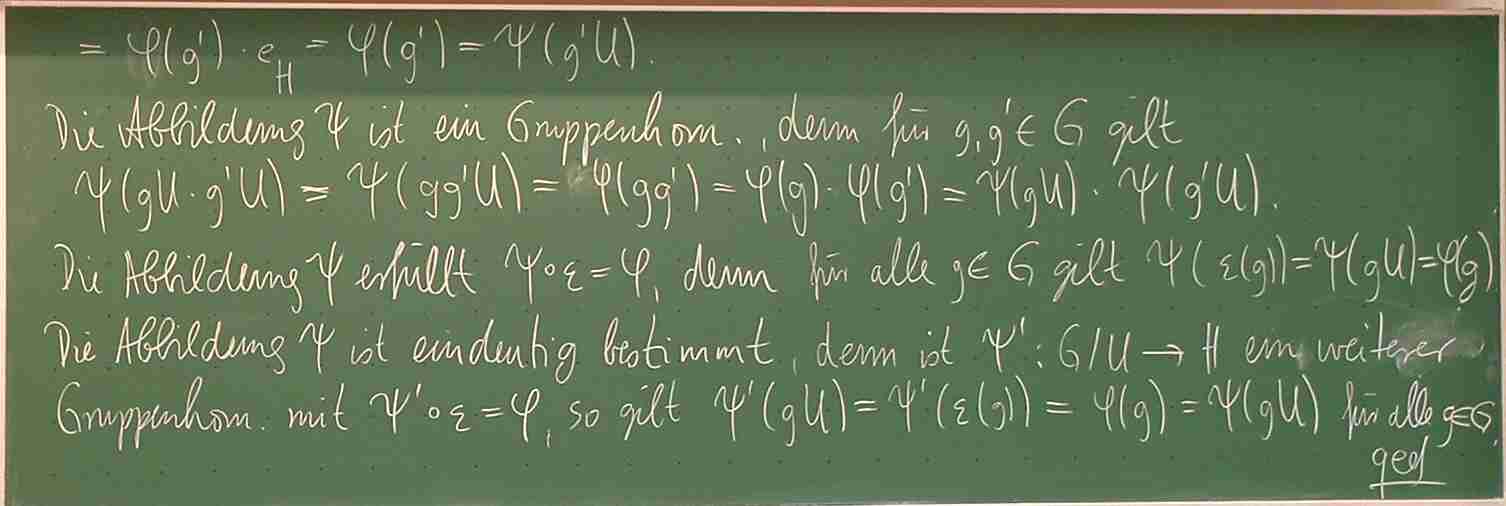 = φ(g') · e_H = φ(g') = Ψ(g'U).
Die Abbildung Ψ ist ein Gruppenhom., denn für g, g' ∈ G gilt
Ψ(gU · g'U) = Ψ(gg'U) = φ(gg') = φ(g) · φ(g') = Ψ(gU) · Ψ(g'U).
Die Abbildung Ψ erfüllt Ψ∘ε = φ, denn für alle g ∈ G gilt Ψ(ε(g)) = Ψ(gU) = φ(g)
Die Abbildung Ψ ist eindeutig bestimmt, denn ist Ψ' : G/U → H ein weiterer
Gruppenhom. mit Ψ'∘ε = φ, so gilt Ψ'(gU) = Ψ'(ε(g)) = φ(g) = Ψ(gU) für alle g∈G.
qed